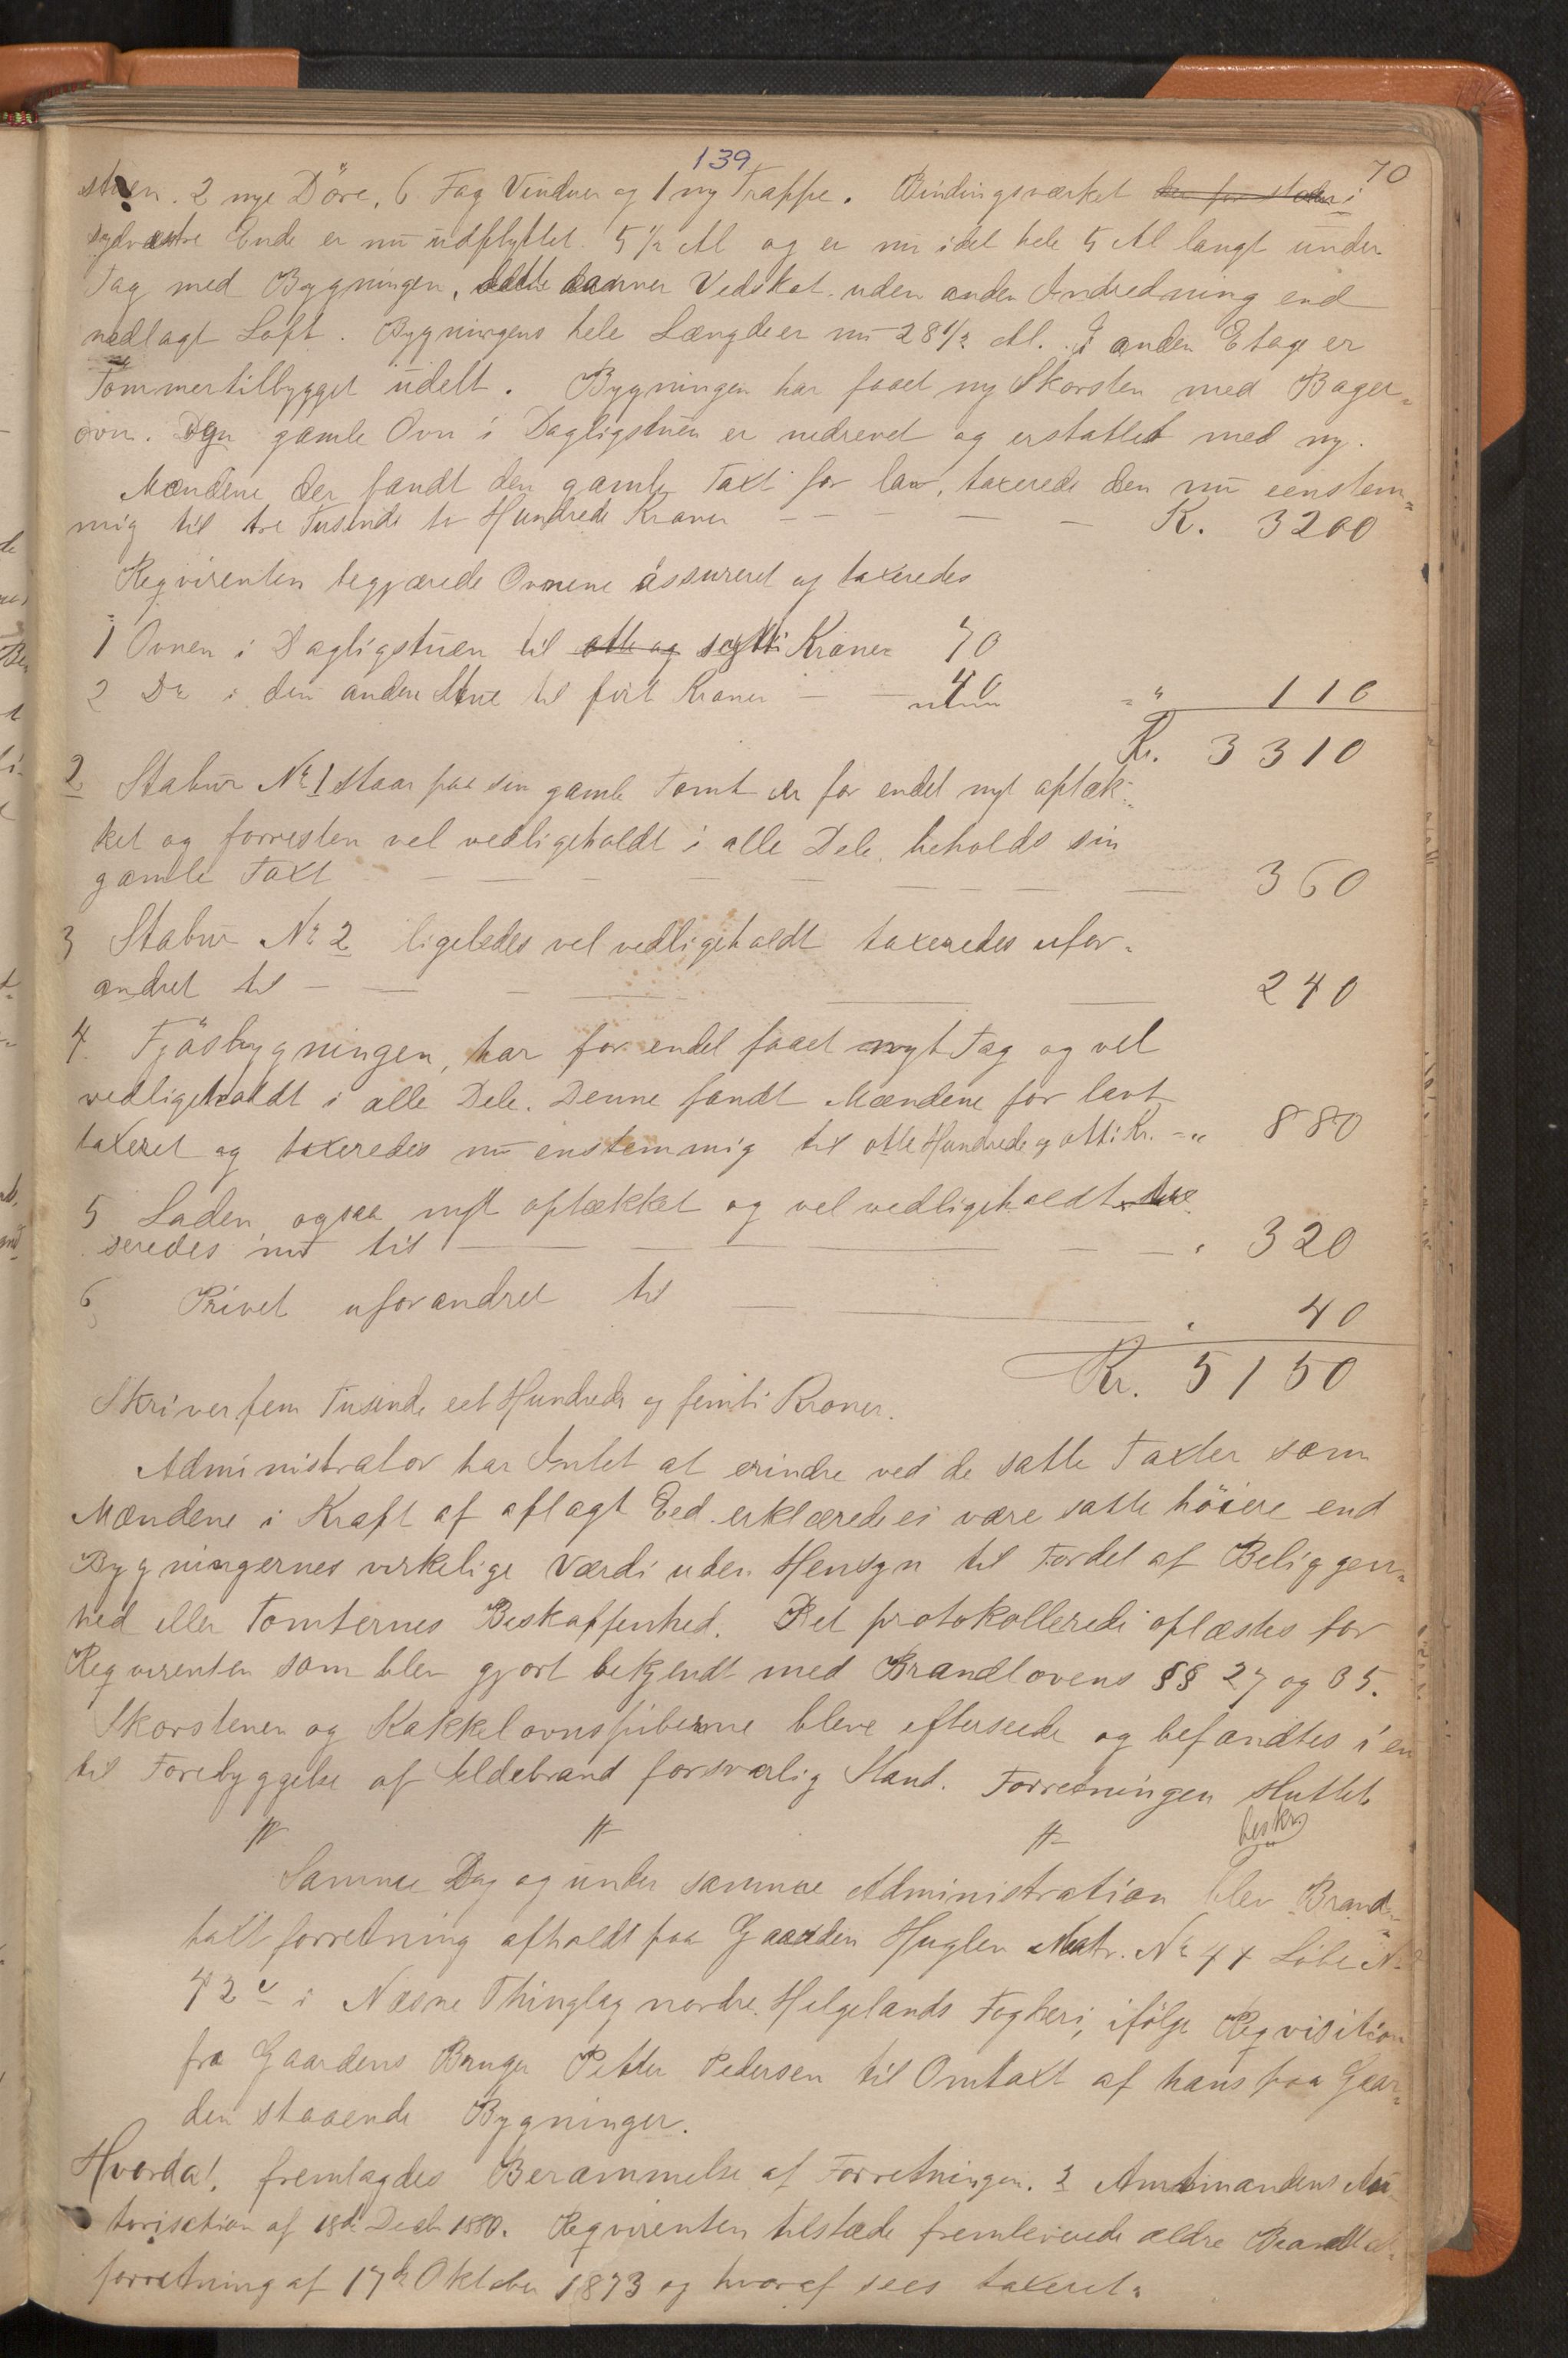 139
70
stuen. 2 nye Döre, 6 Fag Vinduer og 1 ny Trappe. Bindingsværket i
sydvestre Ende er nu udflyttet 5 1/2 Al og er nu idet hele 5 Al langt under
Tag med Bygningen, dette danner Vedskot uden anden Indredning end
nedlagt Loft. Bygningens hele Længde er nu 28 1/2 Al. I anden Etage er
Tömmertilbygget udelt. Bygningen har faaet ny Skorsten med Bager-
ovn. Den gamle Ovn i Dagligstuen er nedrevet og erstattet med ny.
Mændene der fandt den gamle Taxt for lav, taxerede den nu eenstem-
mig til tre Tusinde to Hundrede Kroner — — — — K. 3200
Reqvirenten begjærede Ovnene assureret og taxeredes
1 Ovnen i Dagligstuen til otte og sytti Kroner 70
2 Do i den anden Stue til förti Kroner — 40 " 110
Kr. 3310
2 Stabur No 1 staar paa sin gamle Tomt er for endel nyt optæk-
ket og forresten vel vedligeholdt i alle Dele, beholds sin
gamle Taxt — — — — — 360
3 Stabur No 2 ligeledes vel vedligeholdt taxeredes ufor-
andret til — — — — 240
4. Fjösbygningen, har for endel faaet nyt Tag og vel
vedligeholdt i alle Dele. Denne fandt Mændene for lavt
taxeret og taxeredes nu enstemmig til otte Hundrede og otti Kr. - " 880
5 Laden ogsaa nyt optækket og vel vedligeholdt tax
seredes nu til — — — — " 320
6, Privet uforandret til — — " 40
Kr. 5150
Skriver fem Tusinde eet Hundrede og femti Kroner.
Administrator har Intet at erindre ved de satte Taxter som
Mændene i Kraft af aflagt Eed erklærede ei være satte höiere end
Bygningernes virkelige Værdi uden Hensyn til Fordel af Beliggen-
hed eller Tomternes Beskaffenhed. Det protokollerede oplæstes for
Reqvirenten som blev gjort bekjendt med Brandlovens §§ 27 og 35.
Skorstenen og Kakkelovnspiberne bleve efterseede og befandtes i en
til Forebyggelse af Ildebrand forsvarlig Stand. Forretningen sluttet
beskr.
Samme Dag og under samme Administration blev Brand-
taxtforretning afholdt paa Gaarden Huglen Matr. No 44 Löbe No
42 c i Næsne Thinglag nordre Helgelands Fogderi, ifölge Reqvisition
fra Gaardens Bruger Petter Pedersen til Omtaxt af hans paa Gaar-
den staaende Bygninger.
Hvorda!, fremlagdes Berammelse af Forretningen. 2 Amtmandens Au-
torisation af 18de Decbr 1880. Reqvirenten tilstede fremleverede ældre Brandtaxt-
forretning af 17de Oktober 1873 og hvoraf sees taxeret: